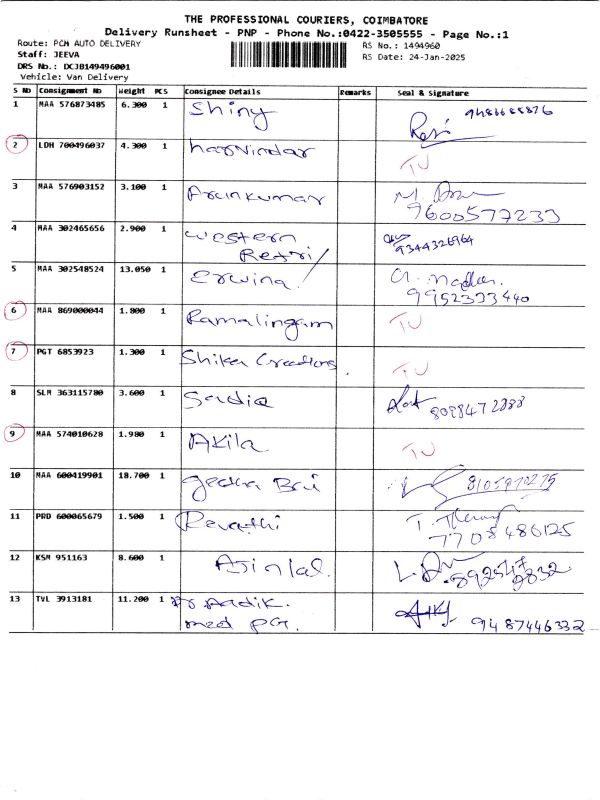 THE PROFESSIONAL COURIERS, COIMBATORE
Delivery Runsheet - PNP - Phone No.:0422-3505555 - Page No.:1
Route: PCM AUTO DELIVERY
RS No.: 1494960
Staff: JEEVA
RS Date: 24-Jan-2025
DRS No.: DCJB149496001
Vehicle: Van Delivery
S No Consignment No Weight PCS Consignee Details Remarks Seal & Signature
1 MAA 576873485 6.300 1 Shiny
2 LDH 700496037 4.300 1 harvindar TU
3 MAA 576903152 3.100 1 Arunkumar
9600577233
4 MAA 302465656 2.900 1 western
9344326964
5 MAA 302548524 13.050 1 Erwina
9952333440
6 MAA 869000044 1.800 1 Ramalingam TU
7 PGT 6853923 1.300 1 Shika Creations TU
8 SLM 363115780 3.600 1 Sadia
9 MAA 574010628 1.980 1 Akila TU
10 MAA 600419901 18.700 1 8105970275
11 PRD 600065679 1.500 1 Revathi
7708486125
12 KSM 951163 8.600 1 Ajinlal.
13 TVL 3913181 11.200 1
med PG. 9487446332